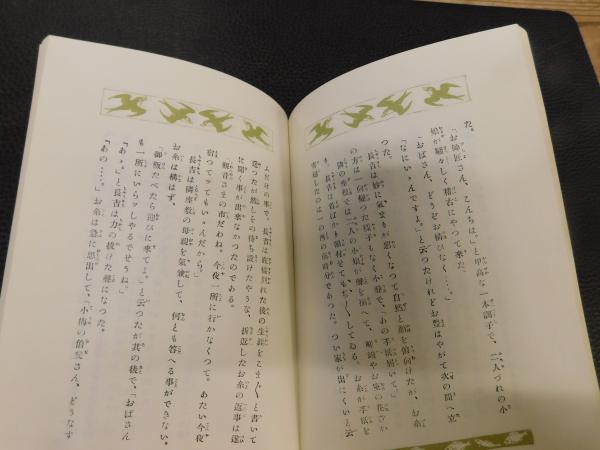 た。
「お師匠さん、こんちは。」と甲高な一本調子で、二人づれの小
娘が騒々しく稽古にやつて来た。
「おばさん、どうぞお構ひなく……。」
「なにいゝんですよ。」と云つたけれどお豊はやがて次の間へ立
つた。
長吉は妙に気まりが悪くなつて自然と顔を俯向けたが、お糸
の方は一向変つた様子もなく小声で、「あの手紙届いて。」
隣の座敷では二人の小娘が声を揃へて、嵯峨やお室の花ざか
り。長吉は首ばかり頷付せてもぢ／＼してゐる。お糸が手紙を
寄越したのは一の酉の前時分であつた。つい家が出にくいと云
ふだけの事で、長吉は直様別れた後の生涯をこま／＼と書いて
送つたが然しその待ち設けたやうな、折返したお糸の返事は遂
に聞く事が出来なかつたのである。
「観音さまの市だわね。今夜一所に行かなくつて。あたい今夜
宿つてツてもいゝんだから。」
長吉は隣座敷の母親を気兼して、何とも答へる事ができない。
お糸は構はず、
「御飯たべたら迎ひに来てよ。」と云つたが其の後で、「おばさん
も一所にいらツしやるでせうね。」
「あゝ。」と長吉は力の抜けた声になつた。
「あの……。」お糸は急に思出して、「小梅の伯父さん、どうなす